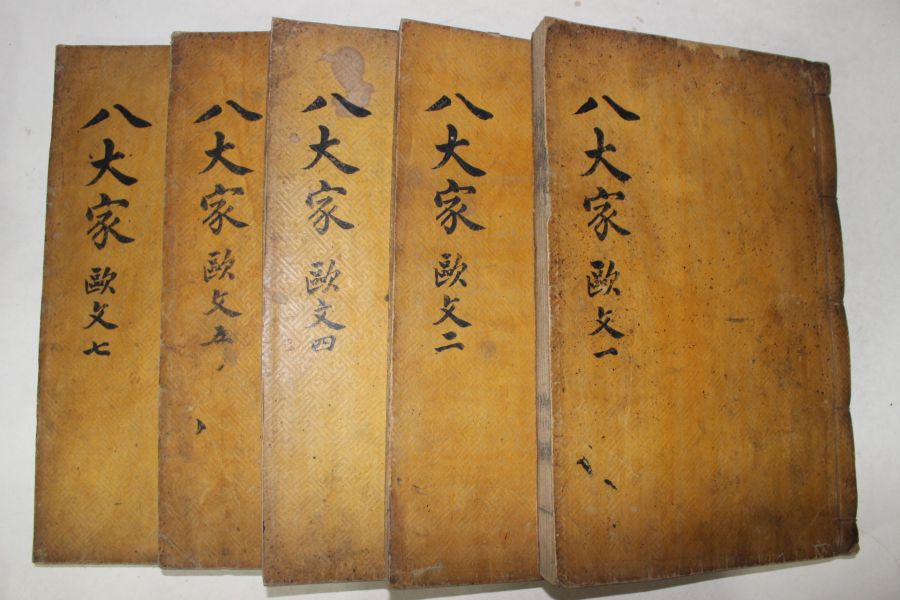 八大家 歐文一
八大家 歐文二
八大家 歐文四
八大家 歐文五
八大家 歐文七